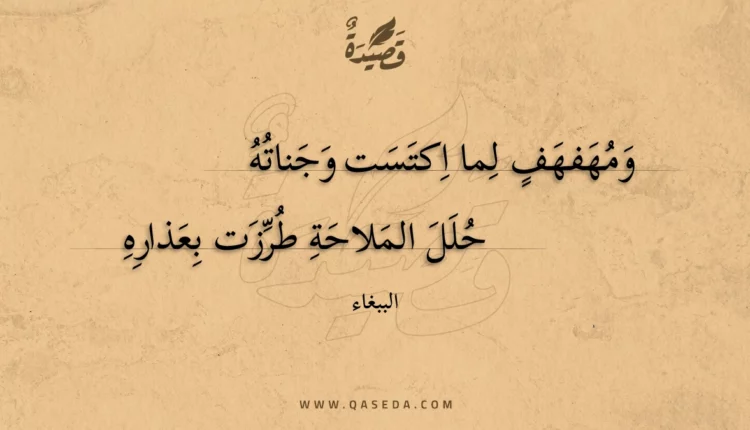 قَصِيْدَةٌ
وَمُهَفهَفٍ لِما اِكتَسَت وَجَناتُهُ
حُلَلَ المَلاحَةِ طُرِّزَت بِعَذارِهِ
الببغاء
WWW.QASEDA.COM